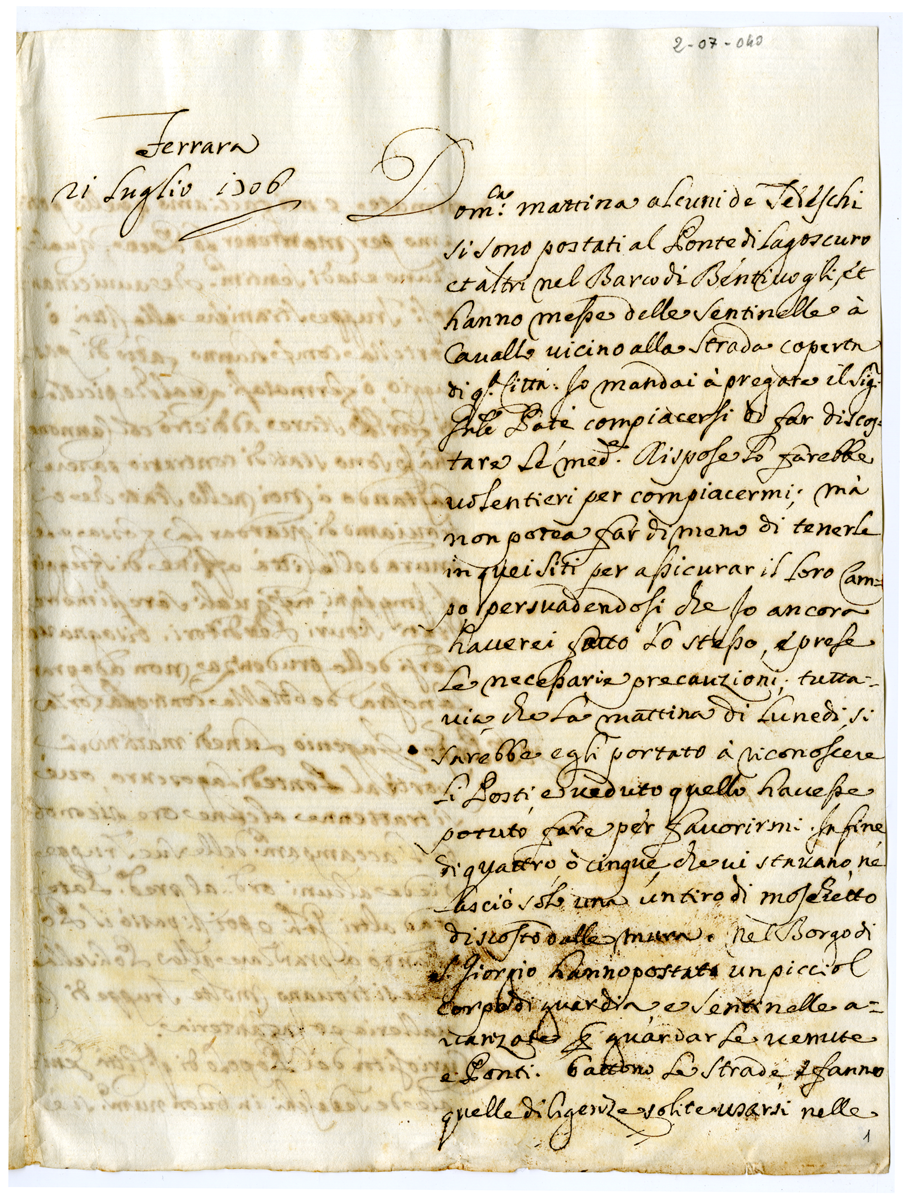 2-07-040
Ferrara
21 Luglio 1706
Dom.ca mattina alcuni de Tedeschi
si sono postati al Ponte di Lagoscuro
et altri nel Barco di Bentivogli, et
hanno messe delle Sentinelle à
Cavallo vicino alla Strada coperta
di q.sta Città. Io mandai à pregare il Sig.r
Gn̄le Patè compiacersi di far discos-
tare le med.e Rispose lo farebbe
volentieri per compiacermi; mà
non potea far di meno di tenerle
in quei siti per assicurar il loro Cam-
po persuadendosi che Io ancora
haverei fatto lo stesso, e prese
le necessarie precauzioni; tutta-
via, che la mattina di Lunedi si
sarebbe egli portato à riconoscere
li Posti, e veduto quello havesse
potuto fare per favorirmi. In fine
di quattro, ò cinque, che vi stavano, nè
lasciò solo una un tiro di moschetto
discosto dalle mura. Nel Borgo di
S. Giorgio hanno postato un picciol
corpo di guardia, e Sentinelle a-
vanzate p guardar le venute
e Ponti. battono le strade, e fanno
quelle diligenze solite usarsi nelle
1